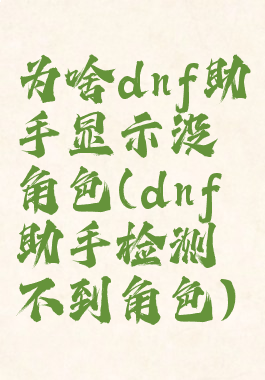 为啥dnf助
手显示没
角色(dnf
助手检测
不到角色)